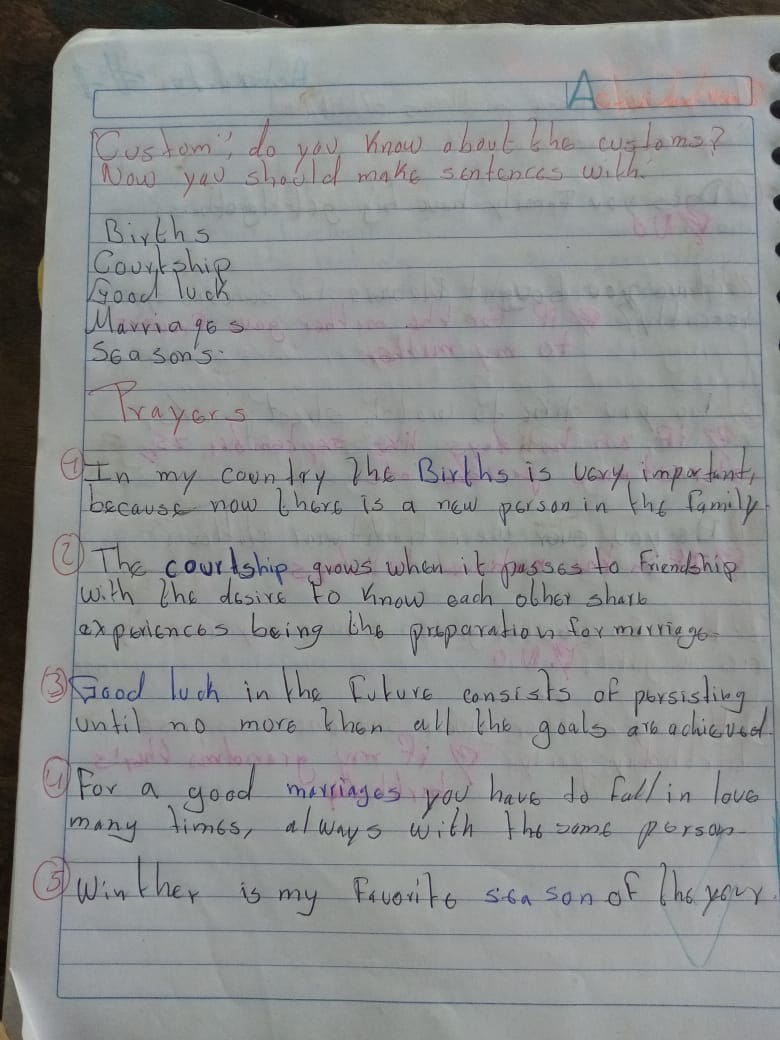 Activities
"Custom", do you know about the customs?
Now you should make sentences with:
Births
Courtship
Good luck
Marriages
Seasons.
Prayers
1 In my country the Births is very important,
because now there is a new person in the family
2 The courtship grows when it passes to friendship
with the desire to know each other share
experiences being the preparation for marriage
3 Good luck in the future consists of persisting
until no more then all the goals are achieved
4 For a good marriages you have to fall in love
many times, always with the same person
5 Winther is my Favorite season of the year.